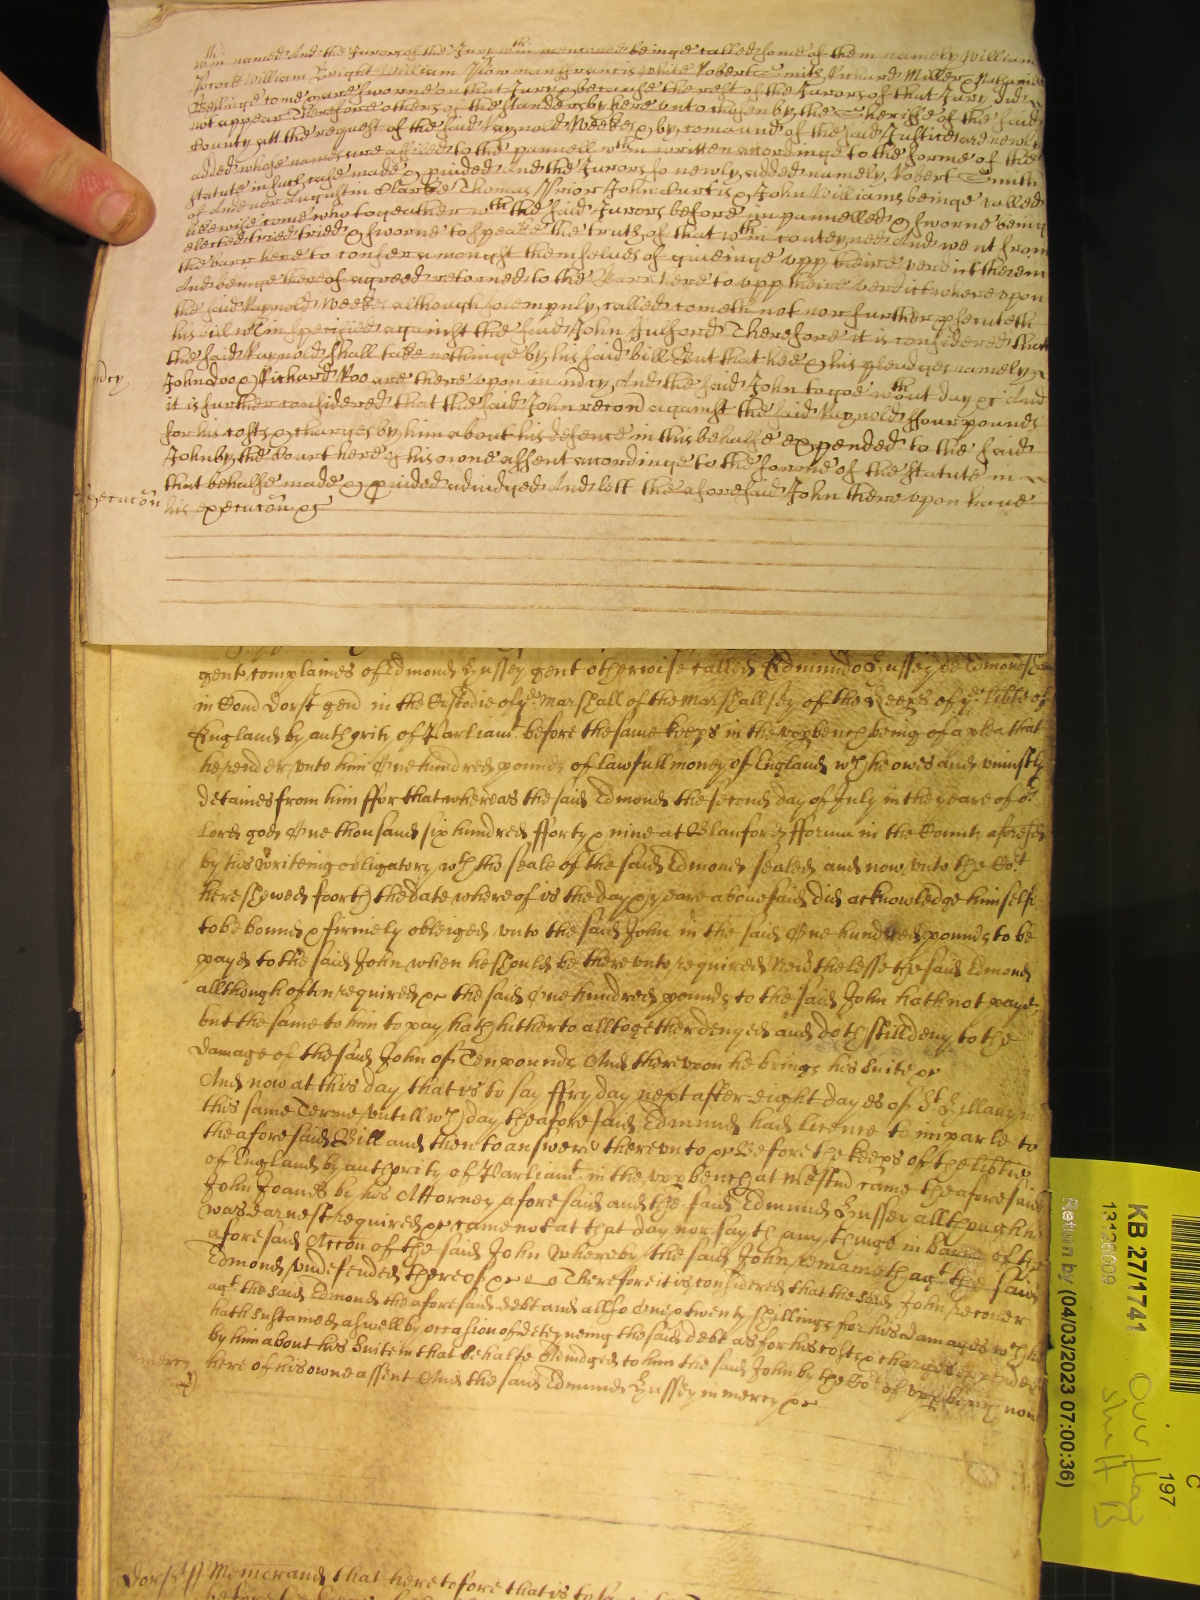 w^th in named And the Jurors of the Jury w^th in mentioned beinge called some of them namely William
William Bright William Plowman ffrancis White Robert Smith Richard Miller Nathaniel
come & are sworne on that Jury & because the rest of the Jurors of that Jury did
not appeare Therefore others of the standers by here unto chosen by the Sheriffe of the said
County att the request of the said Raynold Weekes & by comaund of the said Justices are newly
added whose names are affiled to the pannell w^th in written accordinge to the forme of the
statute in such case made & p^rvided And the Jurors so newly added namely Robert Smith
of Andever Augustin Clarke Thomas Prior John Curtis & John Williams beinge called
likewise come who togeather w^th the said Jurors before impannelled & sworne being
elected tried & sworne to speake the truth of that w^th in conteyned And went from
the barr here to confer amongst themselves of giveinge upp theire verdict therein
And beinge thereof agreed returned to the Barr here to upp theire verdict whereupon
the said Raynold Weekes although solempnly called cometh not nor further p^rsecuteth
his bill w^th in specified against the said John Therefore it is considered that
the said Raynold shall take nothinge by his said bill But that hee & his pledges namely
John Doo & Richard Roo are thereupon in m^rcy And the said John to goe w^th out day &c And
it is further considered that the said John recou^r against the said Raynold ffour pounds
for his costs & charges by him about his defence in this behalfe expended to the said
John by the Court here of his owne assent accordinge to the forme of the statute in
that behalfe made & p^rvided adiudged And lett the aforesaid John thereupon have
his execucon &c
m^rcy
execucon
gent complaines of Edmond Hussey gent otherwise called Edmundo Hussey de Edmondsham
in Com Dorst gen in the Custodie of y^e Marshall of the Marshallsey of the Keep^rs of y^e lib^tie of
England by authority of Parliam^t before the same keep^rs in the upp bench being of a plea that
he render unto him One hundred pounds of lawfull money of England w^ch he owes and uniustly
detaines from him ffor that whereas the said Edmond the second day of July in the yeare of o^r
Lord god One thousand six hundred fforty & nine at Blanford fforum in the County aforesaid
by his writeing obligatory w^th the seale of the said Edmond sealed and now unto the Co^rt
here shewed foorth the date whereof is the day & yeare abovesaid did acknowledge himselfe
to be bound & firmely obleiged unto the said John in the said One hundred pounds to be
payd to the said John when he should be thereunto required Nevthelesse the said Edmond
allthough often required &c the said One hundred pounds to the said John hath not payd
but the same to him to pay hath hitherto alltogether denyed and doth still deny to the
damage of the said John of Ten pounds And thereupon he brings his suite &c
And now at this day that is to say ffryday next after eight dayes of S^t Hillary in
this same Terme untill w^ch day the aforesaid Edmund had licence to imparle to
the aforesaid Bill and then to answere thereunto &c Before the keep^rs of the lib^tie
of England by authority of Parliam^t in the upp bench at Westm^r came the aforesaid
John by his Attorney aforesaid and the said Edmund Hussey allthough he
was earnest required &c came not at that day nor say th any thinge in barr of the
aforesaid Accon of the said John whereby the said John remaineth ag^t the said
Edmond undefended thereof &c Therefore it is considered that the said John recover
ag^t the said Edmond the aforesaid debt and allso One & twenty shillings for his damages w^ch he
hath sustained aswell by occasion of deteyneing the said debt as for his costs & charges expended
by him about his suite in that behalfe Adiudged to him the said John by the Co^rt of upp bench now
here of his owne assent And the said Edmund Hussey in mercy &c
mercy
Dorst ss Memorand that heretofore that is to say
KB 27/1741
13126009
Return by (04/03/2023 07:00:36)
C
197